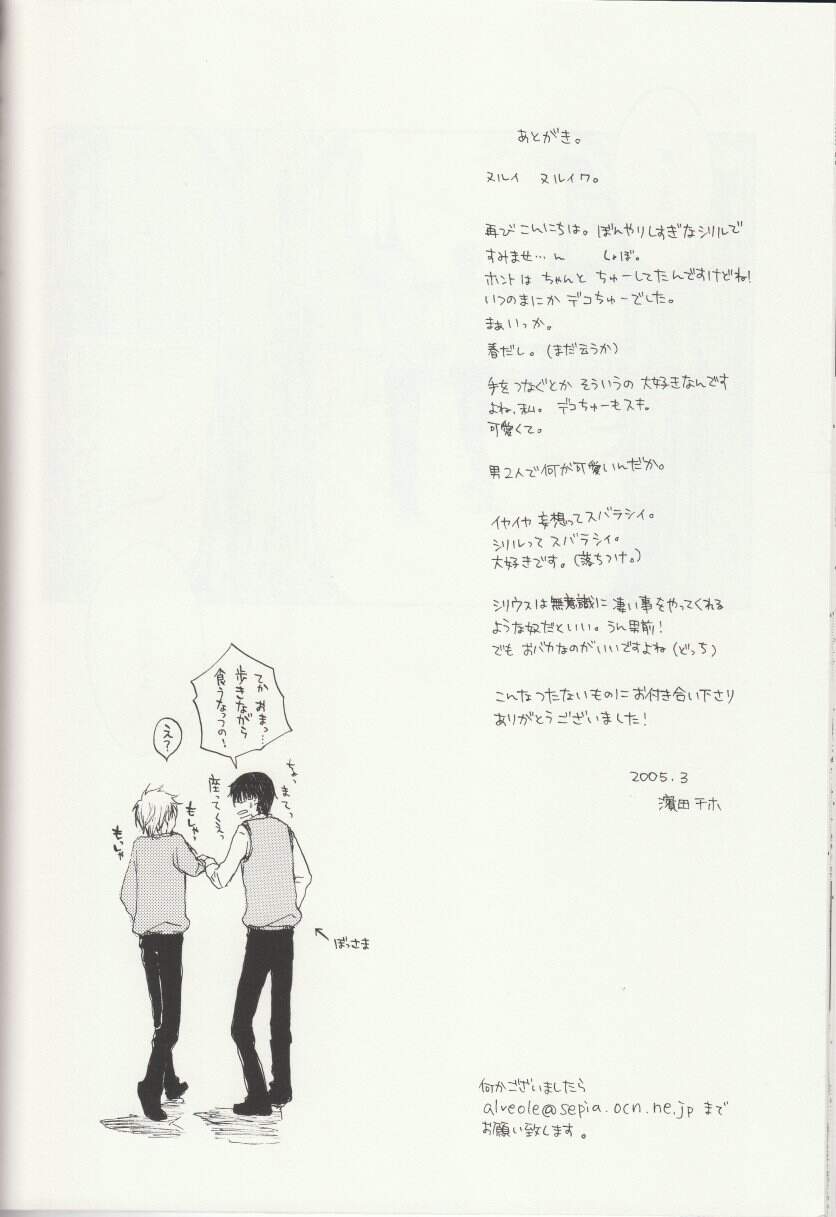 あとがき。
ヌルイ　ヌルイワ。
再びこんにちは。ぼんやりしすぎなシリルで
すみませ…ん　しょぼ。
ホントは ちゃんと ちゅーしてたんですけどね!
いつのまにか デコちゅーでした。
まぁいっか。
春だし。(まだ云うか)
手をつなぐとか そういうの 大好きなんです
よね、私。デコちゅーもスキ。
可愛くて。
男2人で何が可愛いんだか。
イヤイヤ 妄想ってスバラシイ。
シリルって スバラシイ。
大好きです。(落ちつけ。)
シリウスは無意識に 凄い事をやってくれる
ような奴だといい。うん男前!
でも おバカなのがいいですよね(どっち)
こんなつたないものにお付き合い下さり
ありがとうございました!
2005.3
濱田チホ
てか おまっ…
歩きながら
食うなっつの!
え?
ちょっ
まてっ
座ってくえっ
もしゃ
もっしゃ
ぼっさま
何かございましたら
alveole@sepia.ocn.ne.jp まで
お願い致します。